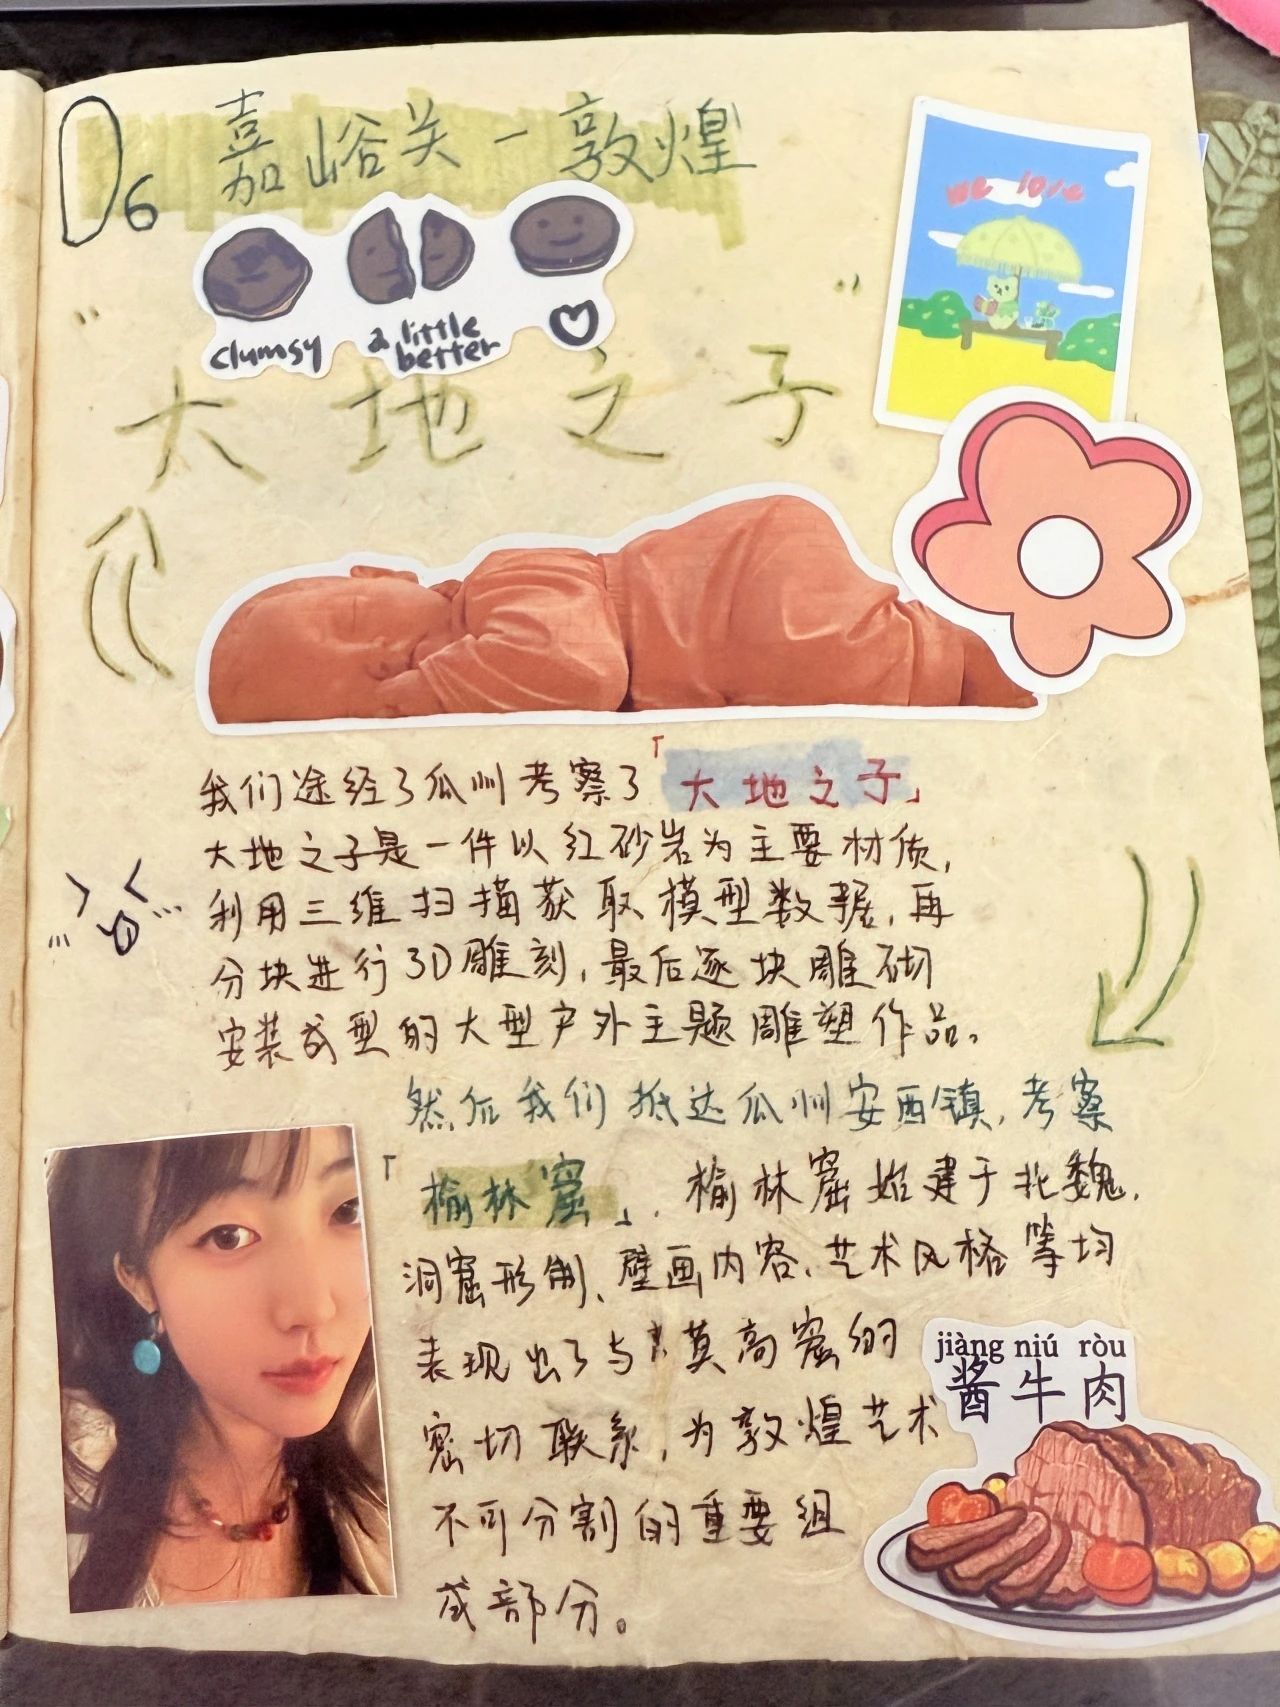 D6 嘉峪关－敦煌
we love
clumsy
a little better
“大地之子”
我们途经了瓜州考察了「大地之子」
大地之子是一件以红砂岩为主要材质，
利用三维扫描获取模型数据，再
分块进行3D雕刻，最后逐块雕砌
安装成型的大型户外主题雕塑作品。
然后我们抵达瓜州安西镇，考察
「榆林窟」，榆林窟始建于北魏，
洞窟形制、壁画内容、艺术风格等均
表现出了与莫高窟的
密切联系，为敦煌艺术
不可分割的重要组
成部分。
jiàng niú ròu
酱牛肉